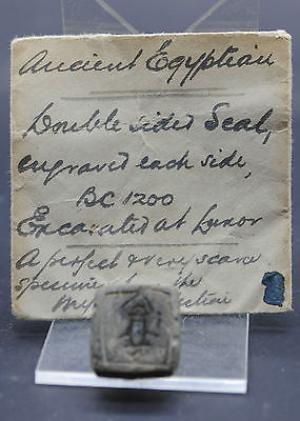 Ancient Egyptian
Double sided Seal,
engraved each side,
BC 1200
Excavated at Luxor
A perfect & very scarce
specimen the